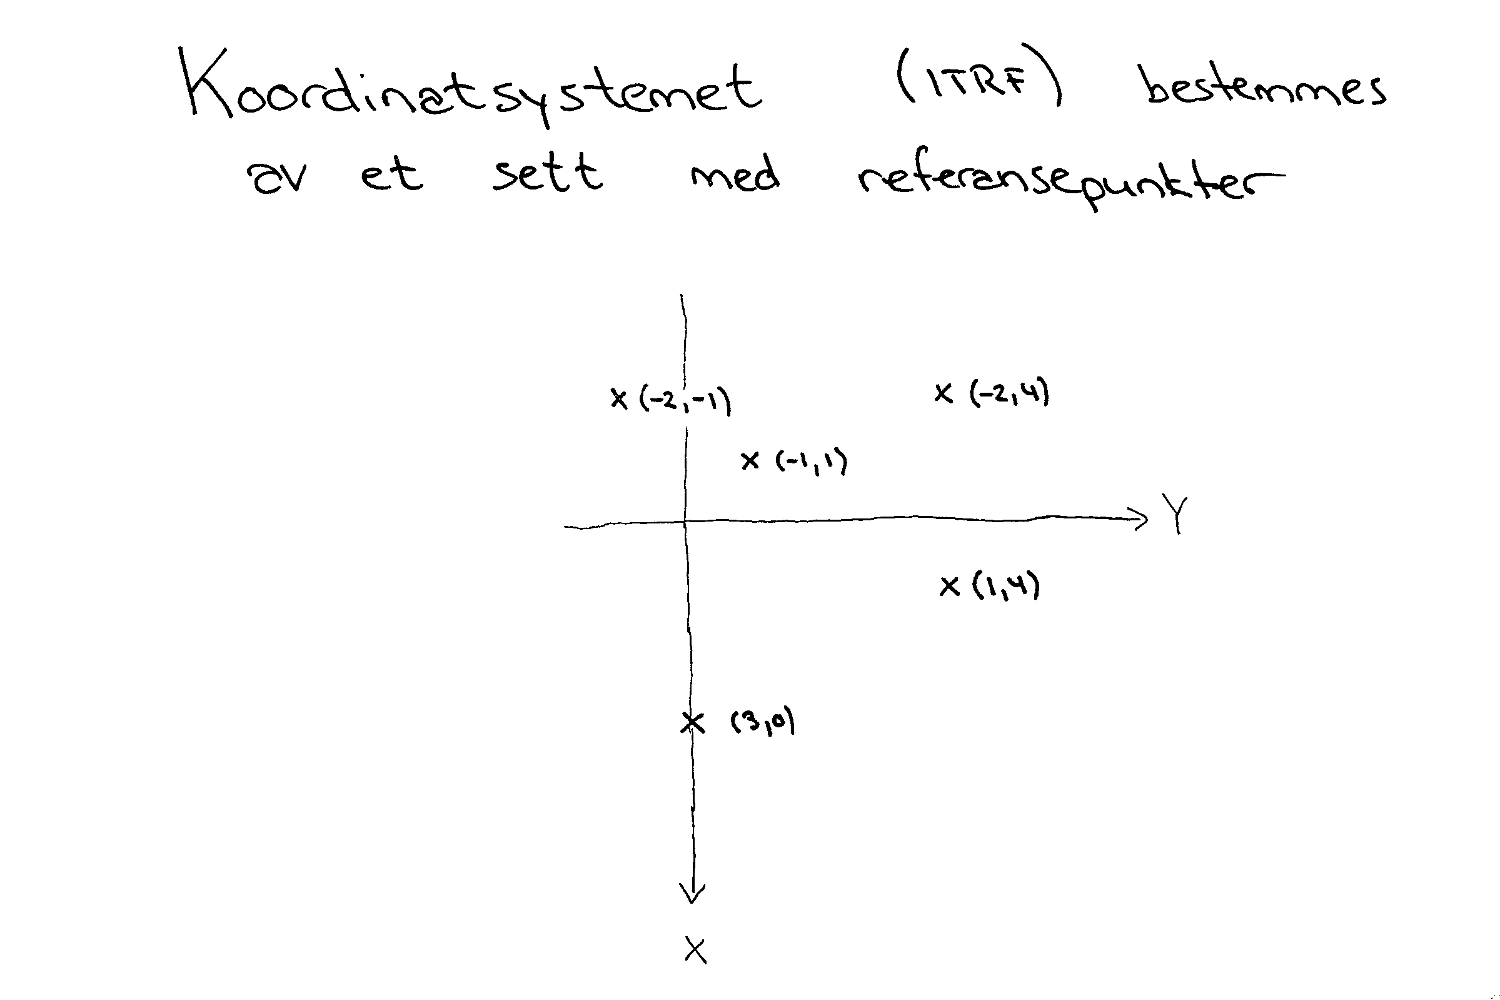 Koordinatsystemet (ITRF) bestemmes
av et sett med referansepunkter
x (-2,-1) x (-2,4)
x (-1,1)
Y
x (1,4)
x (3,0)
X